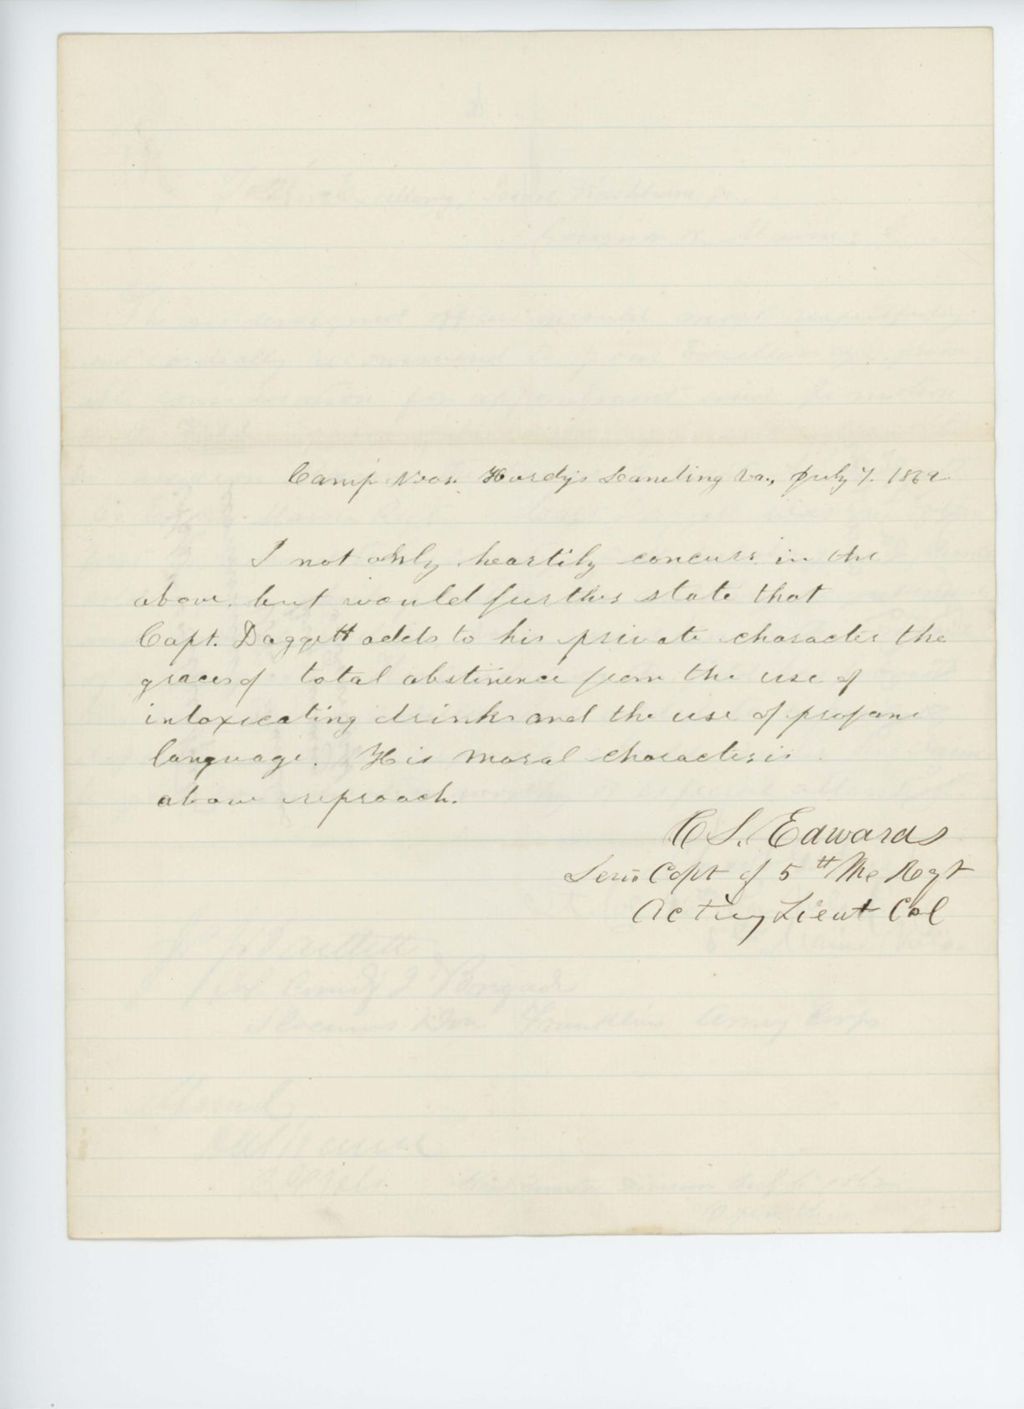 Camp Near Hardys Landing Va., July 7. 1862
I not only heartily concur in the
above, but would further state that
Capt. Daggett adds to his private character the
graces of total abstinence from the use of
intoxicating drinks and the use of profane
language. His moral character is
above reproach.
C S. Edwards
Senr Capt of 5th Me Regt
Acting Lieut Col